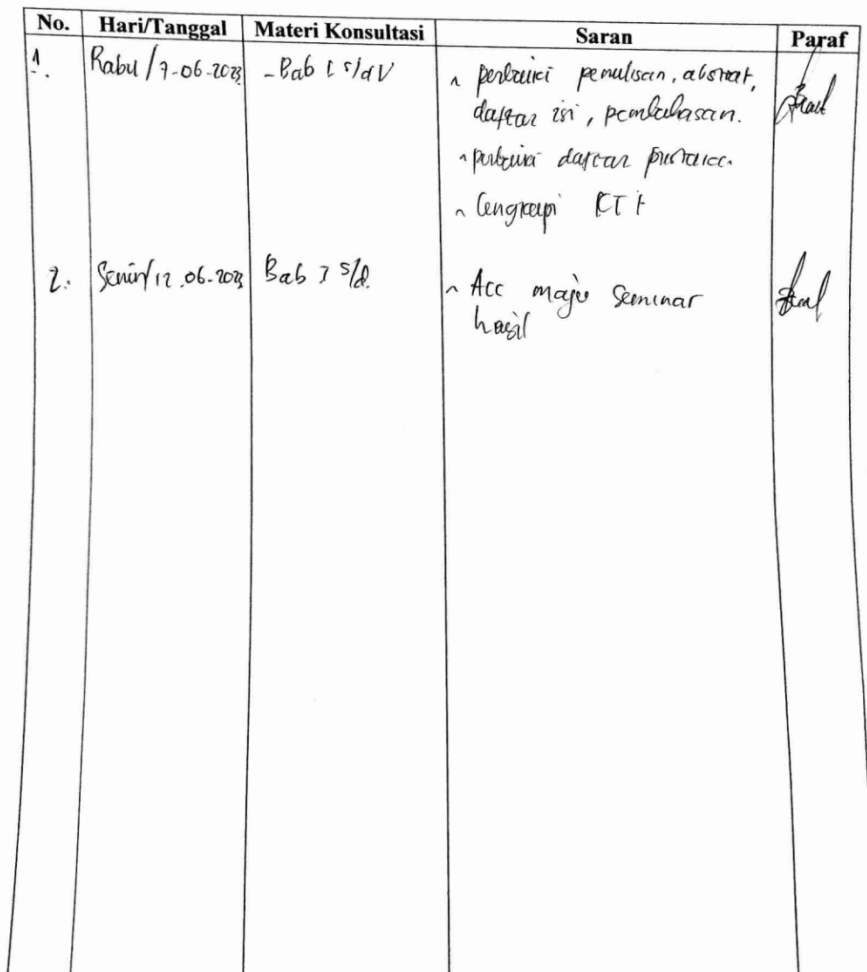 No. Hari/Tanggal Materi Konsultasi Saran Paraf
1. Rabu / 7-06-2023 - Bab I s/d V perbaiki penulisan, abstrak,
daftar isi, pembahasan.
perbaiki daftar pustaka.
lengkapi KTI
2. Senin/12.06-2023 Bab I s/d. Acc maju Seminar
hasil